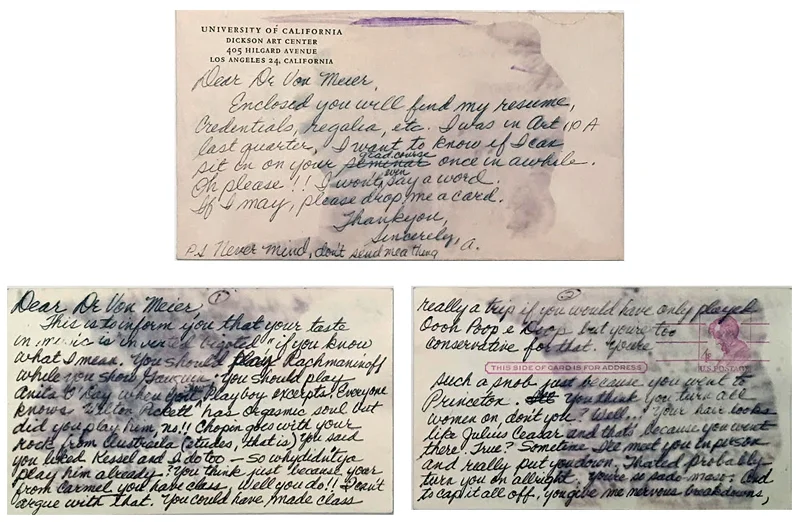 UNIVERSITY OF CALIFORNIA
DICKSON ART CENTER
405 HILGARD AVENUE
LOS ANGELES 24, CALIFORNIA
Dear Dr Von Meier,
Enclosed you will find my resume,
Credentials, regalia, etc. I was in Art 110 A
last quarter. I want to know if I can
sit in on your seminar grad. course once in awhile.
Oh please!!! I won't even say a word.
If I may, please drop me a card.
Thankyou,
Sincerely, A.
P.S Never mind, don't send me a thing
1
Dear Dr Von Meier,
This is to inform you that your taste
in music is inverted bigoted" if you know
what I mean. You should play Rachmaninoff
while you show Gauguin. You should play
Anita O'Day when you Playboy excerpts! Everyone
knows Wilson Pickett has orgasmic soul but
did you play him, no!! Chopin goes with your
rock from Austraila (etudes, that is) You said
you liked Kessel and I do too — so why didntya
play him already? You think just because your
from Carmel you have class. Well you do!! I can't
argue with that. You could have made class
2
really a trip if you would have only played
Oooh Poop e Doop but you're too
conservative for that. You're
4¢
U.S. POSTAGE
THIS SIDE OF CARD IS FOR ADDRESS
such a snob just because you went to
Princeton. You think you turn all
women on, don't you? Well... Your hair looks
like Julius Ceasar and that's because you went
there! True? Sometime I'll meet you in person
and really put you down. Thated probably
turn you on allright. You're so sado-maso! And
to cap it all off, you give me nervous breakdowns,